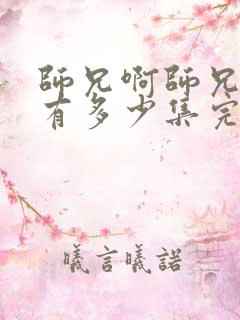 師兄啊師兄
有多少集完
曦言曦諾